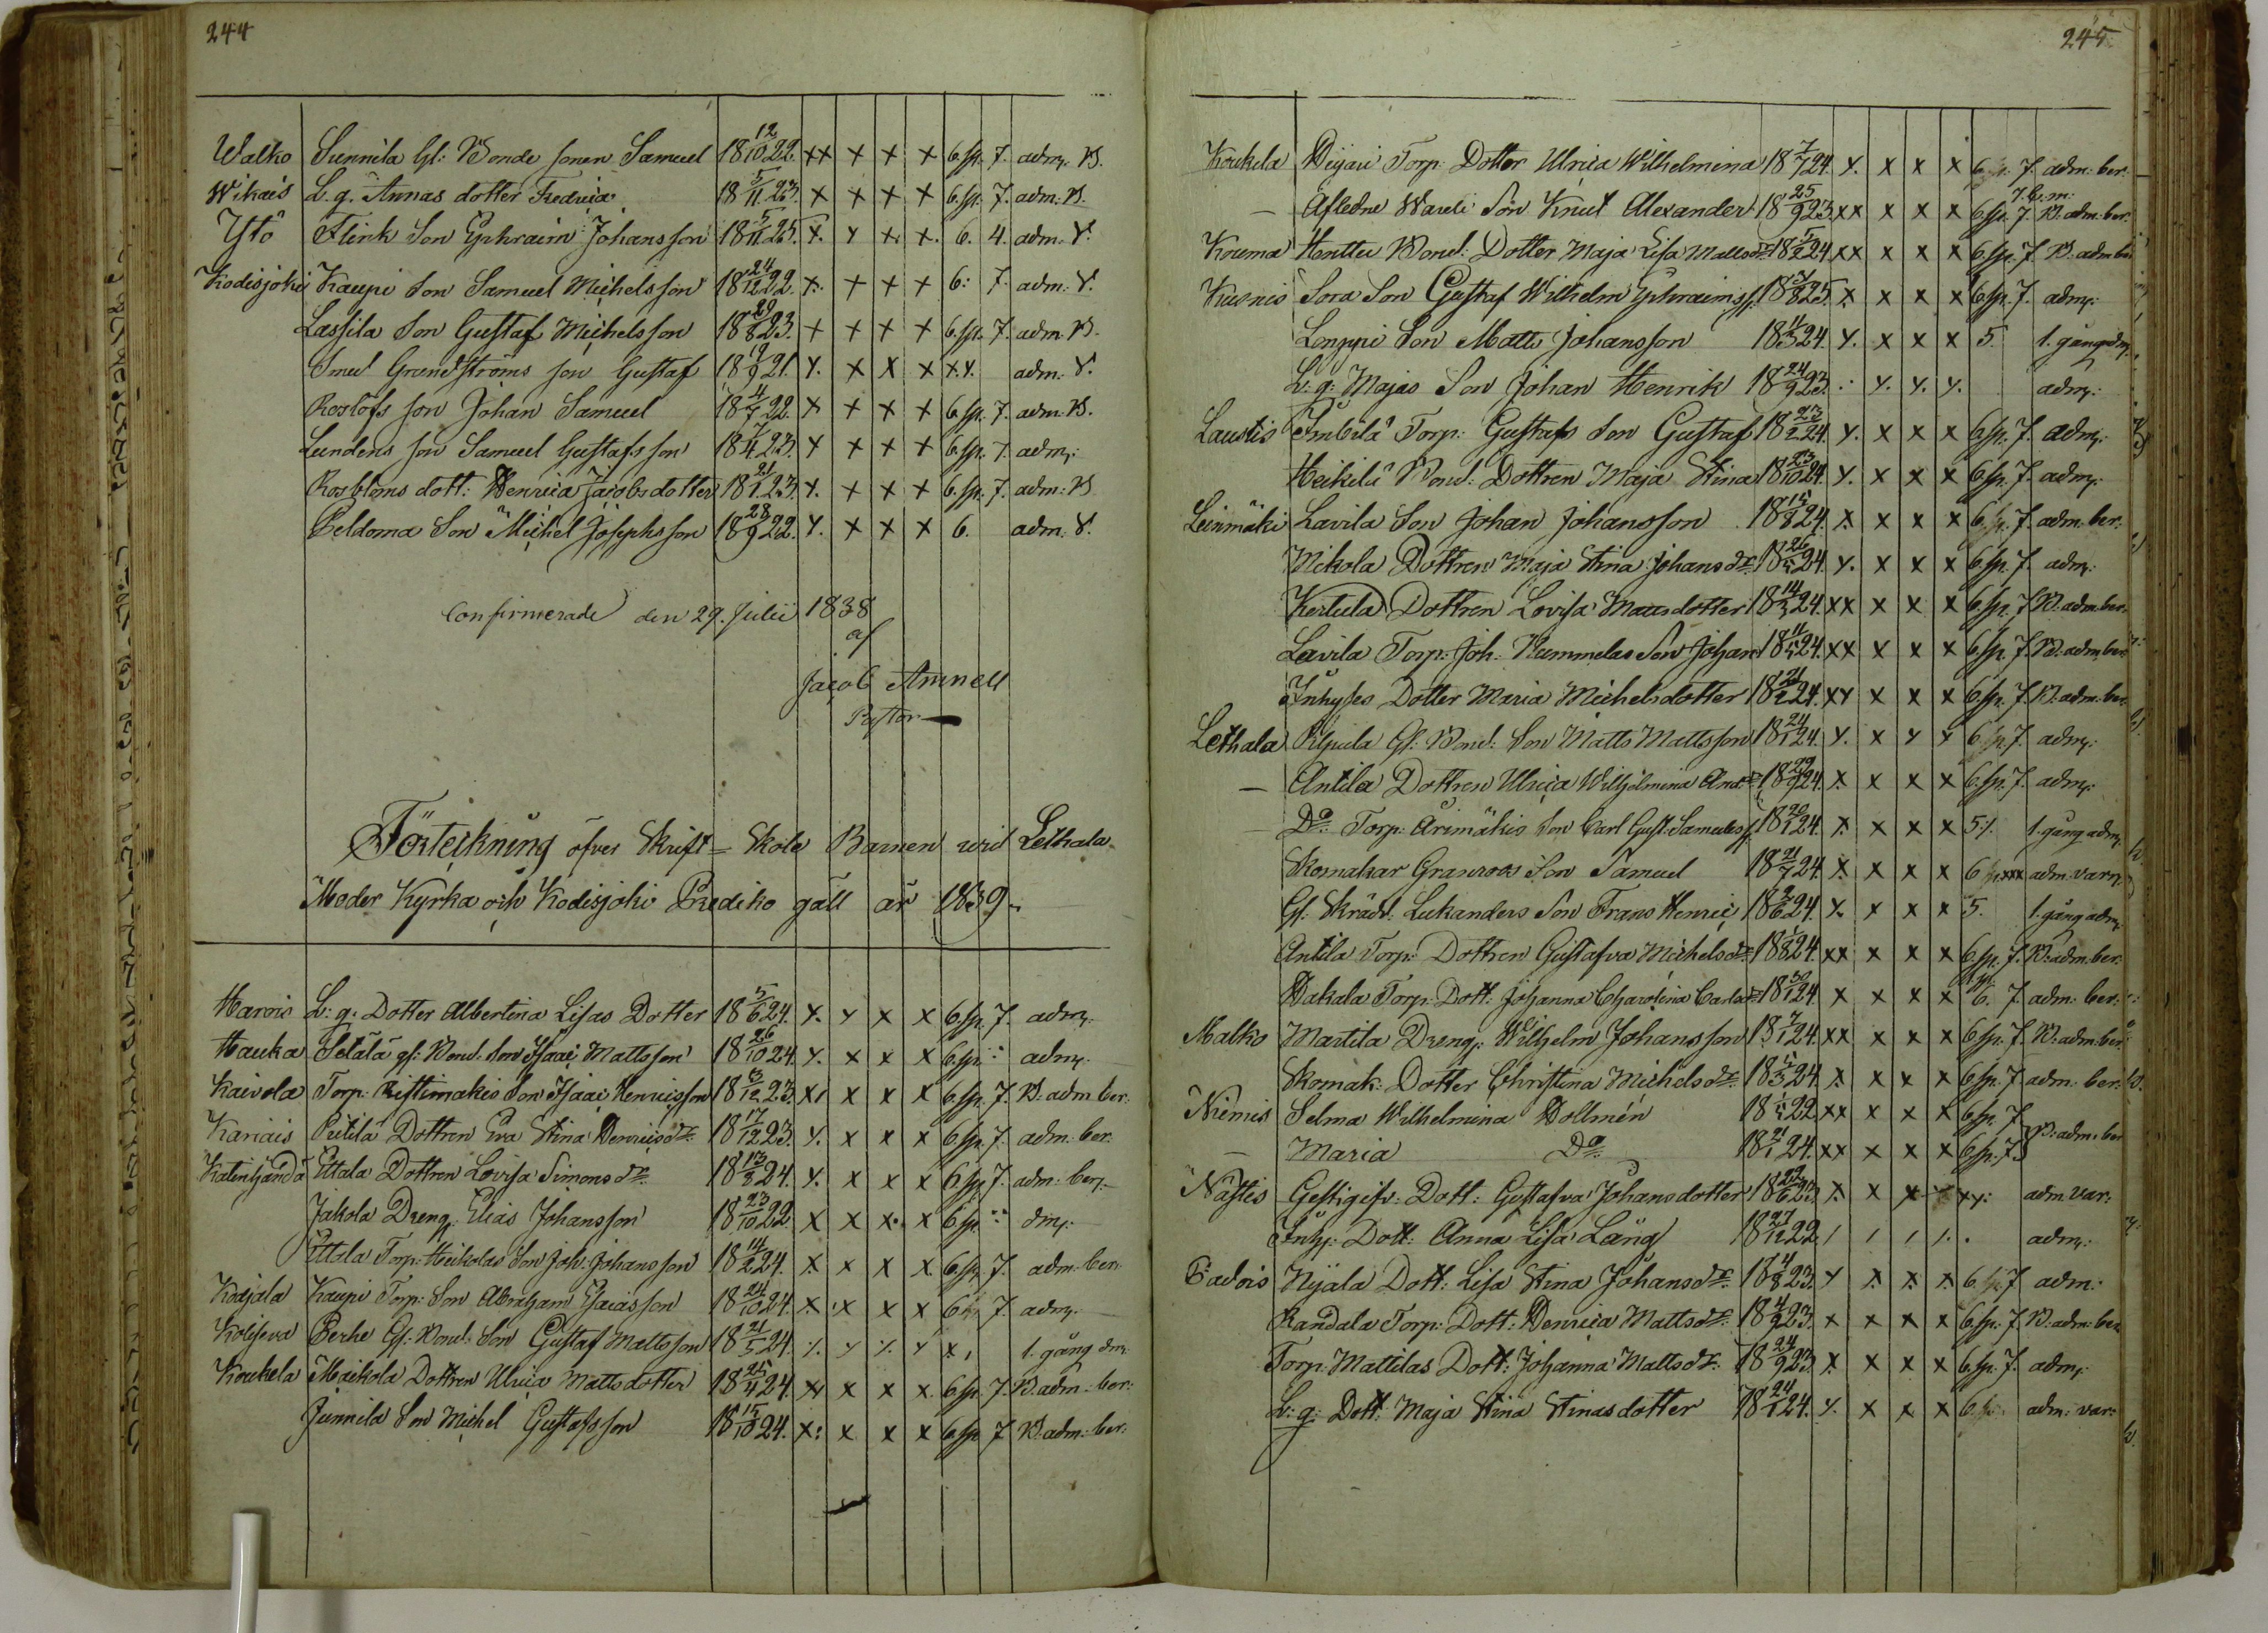 244
Walko Sunnila Gl: Bonde sonen Samuel 18 12/10 22. xx x x x 6. sp. 7. adm. B.
Wikais L. g. Annas dotter Fredrica 18 5/11 23. x x x x 6. sp. 7. adm. B.
Ytö Flink Son Ephraim Johansson 18 5/11 25. x. x x. x. 6. 4. adm. V.
Kodisjoki Kaupi Son Samuel Michelsson 18 24/12 22. x. x x x 6: 7. adm. V.
Lassila Son Gustaf Michelsson 18 29/8 23. x x x x 6. sp. 7. adm. B.
Smed Grundströms son Gustaf 18 19/9 21. x. x x x x.x. adm. V.
Roslöfs son Johan Samuel 18 4/7 22. x x x x 6. sp. 7. adm. B.
Lundens son Samuel Gustafsson 18 7/4 23. x x x x 6. sp. 7. adm:
Rosbloms dott: Henrica Jacobsdotter 18 21/1 23. x. x x x 6. sp. 7. adm: B
Peldoma Son Michel Josephsson 18 28/9 22. x. x x x 6. adm: V.
Confirmerade den 29. Julii 1838
af
Jacob Amnell
Pastor
Förteckning öfver Skrift-Skole Barnen wid Lethala
Moder Kyrka och Kodisjoki Prediko gäll år 1839.
Harois L: g: Dotter Albertina Lisas Dotter 18 5/6 24. x. x x x 6 sp. 7. adm.
Hauka Setälä gl: Bond. Son Isaac Mattsson 18 26/10 24. x. x x x 6 sp. adm.
Kaivola Torp. Ristimäkis Son Isaac Henricsson 18 13/12 23. x x x x 6 sp. 7. B. adm. ber:
Kariais Prittilä Dottren Eva Stina Henricsdr. 18 17/12 23. x. x x x 6 sp. 7. adm. ber.
Katinhändä Ettala Dottren Lovisa Simonsdr. 18 13/8 24. x. x x x 6 sp. 7. adm. ber.
Jakola Dreng. Elias Johansson 18 23/10 22. x x x x 6 sp dm:
Ettala Torp. Heikolas Son Joh. Johansson 18 14/2 24. x. x x x 6 sp. 7. adm. ber.
Kodjala Kaupi Torp. Son Abraham Esaiasson 18 24/10 24. x. x x x 6 sp. 7. adm.
Kolijeva Perhe Gl: Bond. Son Gustaf Mattsson 18 21/5 24. x x 1. gång dm.
Koukela Maikola Dottren Ulrica Mattsdotter 18 25/4 24. xx x x x 6 sp. 7. B. adm. ber:
Junnila Son Michel Gustafsson 18 15/10 24. x: x x x 6 sp. 7 B. adm. ber:
245
Koukela Torp. Dotter Ulrica Wilhelmina 18 7/7 24. x. x x x 6 sp. 7. adm. ber.
— Afledne Son Knut Alexander 18 25/9 23. xx x x x 6 sp. 7. B. adm. ber.
Kouma Honttu Bond: Dotter Maja Lisa Mattsdr 18 5/2 24 xx x x x 6 sp. 7. B. adm. ber
Kusnis Sora Son Gustaf Wilhelm Ephraimss. 18 7/8 25. x x x x 6 sp. 7. adm:
Lonppi Son Matts Johansson 18 11/3 24. x. x x x 5. 1. gång adm.
L: g: Majas Son Johan Henrik 18 24/9 23. x. x. x. adm:
Laustis Torp. Gustafs Son Gustaf 18 23/2 24. x. x x x 6 sp. 7. adm:
Heikilä Bond: Dottren Maja Stina 18 23/10 24. x. x x x 6 sp. 7. adm.
Leinmäki Lavila Son Johan Johansson 18 15/8 24. x. x x x 6 sp. 7. adm. ber.
Mikola Dottren Maja Stina Johansdr. 18 26/5 24. x. x x x 6 sp. 7. adm:
Kertula Dottren Lovisa Mattsdotter 18 14/3 24. xx x x x 6 sp. 7. B. adm. ber.
Lavila Torp. Joh. Nummelas Son Johan 18 11/5 24. xx x x x 6 sp. 7. B. adm. ber
Inhyses Dotter Maria Michelsdotter 18 21/2 24. xx x x x 6 sp. 7. B. adm. ber
Lethala Kylpula Gl. Bond: Son Matts Mattsson 18 24/1 24. x. x x x 6 sp. 7. adm:
— Antila Dottren Ulrica Wilhelmina Andr. 18 29/9 24. x. x x x 6 sp. 7. adm:
— Do: Torp. Arimäkis Son Carl Gust. Samuelss. 18 20/1 24. x. x x x 5. 1. gång adm.
Skomakar Granroos Son Samuel 18 21/7 24. x x x x 6 xxx adm. var.
Gl. Skrädd. Lukanders Son Frans Henric 18 2/6 24. x. x x x 5. 1. gång adm.
Antila Torp. Dottren Gustafva Michelsdr 18 1/8 24. xx x x x 6 sp. 7. B. adm. ber.
Wakala Torp. Dott: Johanna Charolina Carlsdr 18 30/1 24. x x x x 6. 7. adm. ber:
Malko Martila Dreng. Wilhelm Johansson 18 7/1 24. xx x x x 6 sp. 7. B. adm. ber.
Skomak: Dotter Christina Michelsdr. 18 5/3 24. x. x x x 6 sp. 7. adm. ber:
Niemis Selma Wilhelmina Hollmén 18 1/5 22. xx x x x 6 sp. 7.
— Maria Do. 18 21/1 24. xx x x x 6 sp. 7. B. adm. ber
Nästis Gestgifv. Dott: Gustafva Johansdotter 18 22/6 23 x. x x x xx: adm var:
Inhy. Dott: Anna Lisa Lång 18 27/12 22. adm:
Padois Nijala Dott: Lisa Stina Johansdr. 18 4/8 23. x x x x 6 sp. 7 adm:
Randala Torp. Dott: Henrica Mattsdr. 18 4/9 23. x x x x 6 sp. 7. B. adm. ber
Torp. Mattilas Dott: Johanna Mattsdr. 18 24/9 23 x. x x x 6 sp. 7. adm:
L: g: Dott: Maja Stina Stinasdotter 18 24/1 24. x. x x x 6 sp. adm: var: